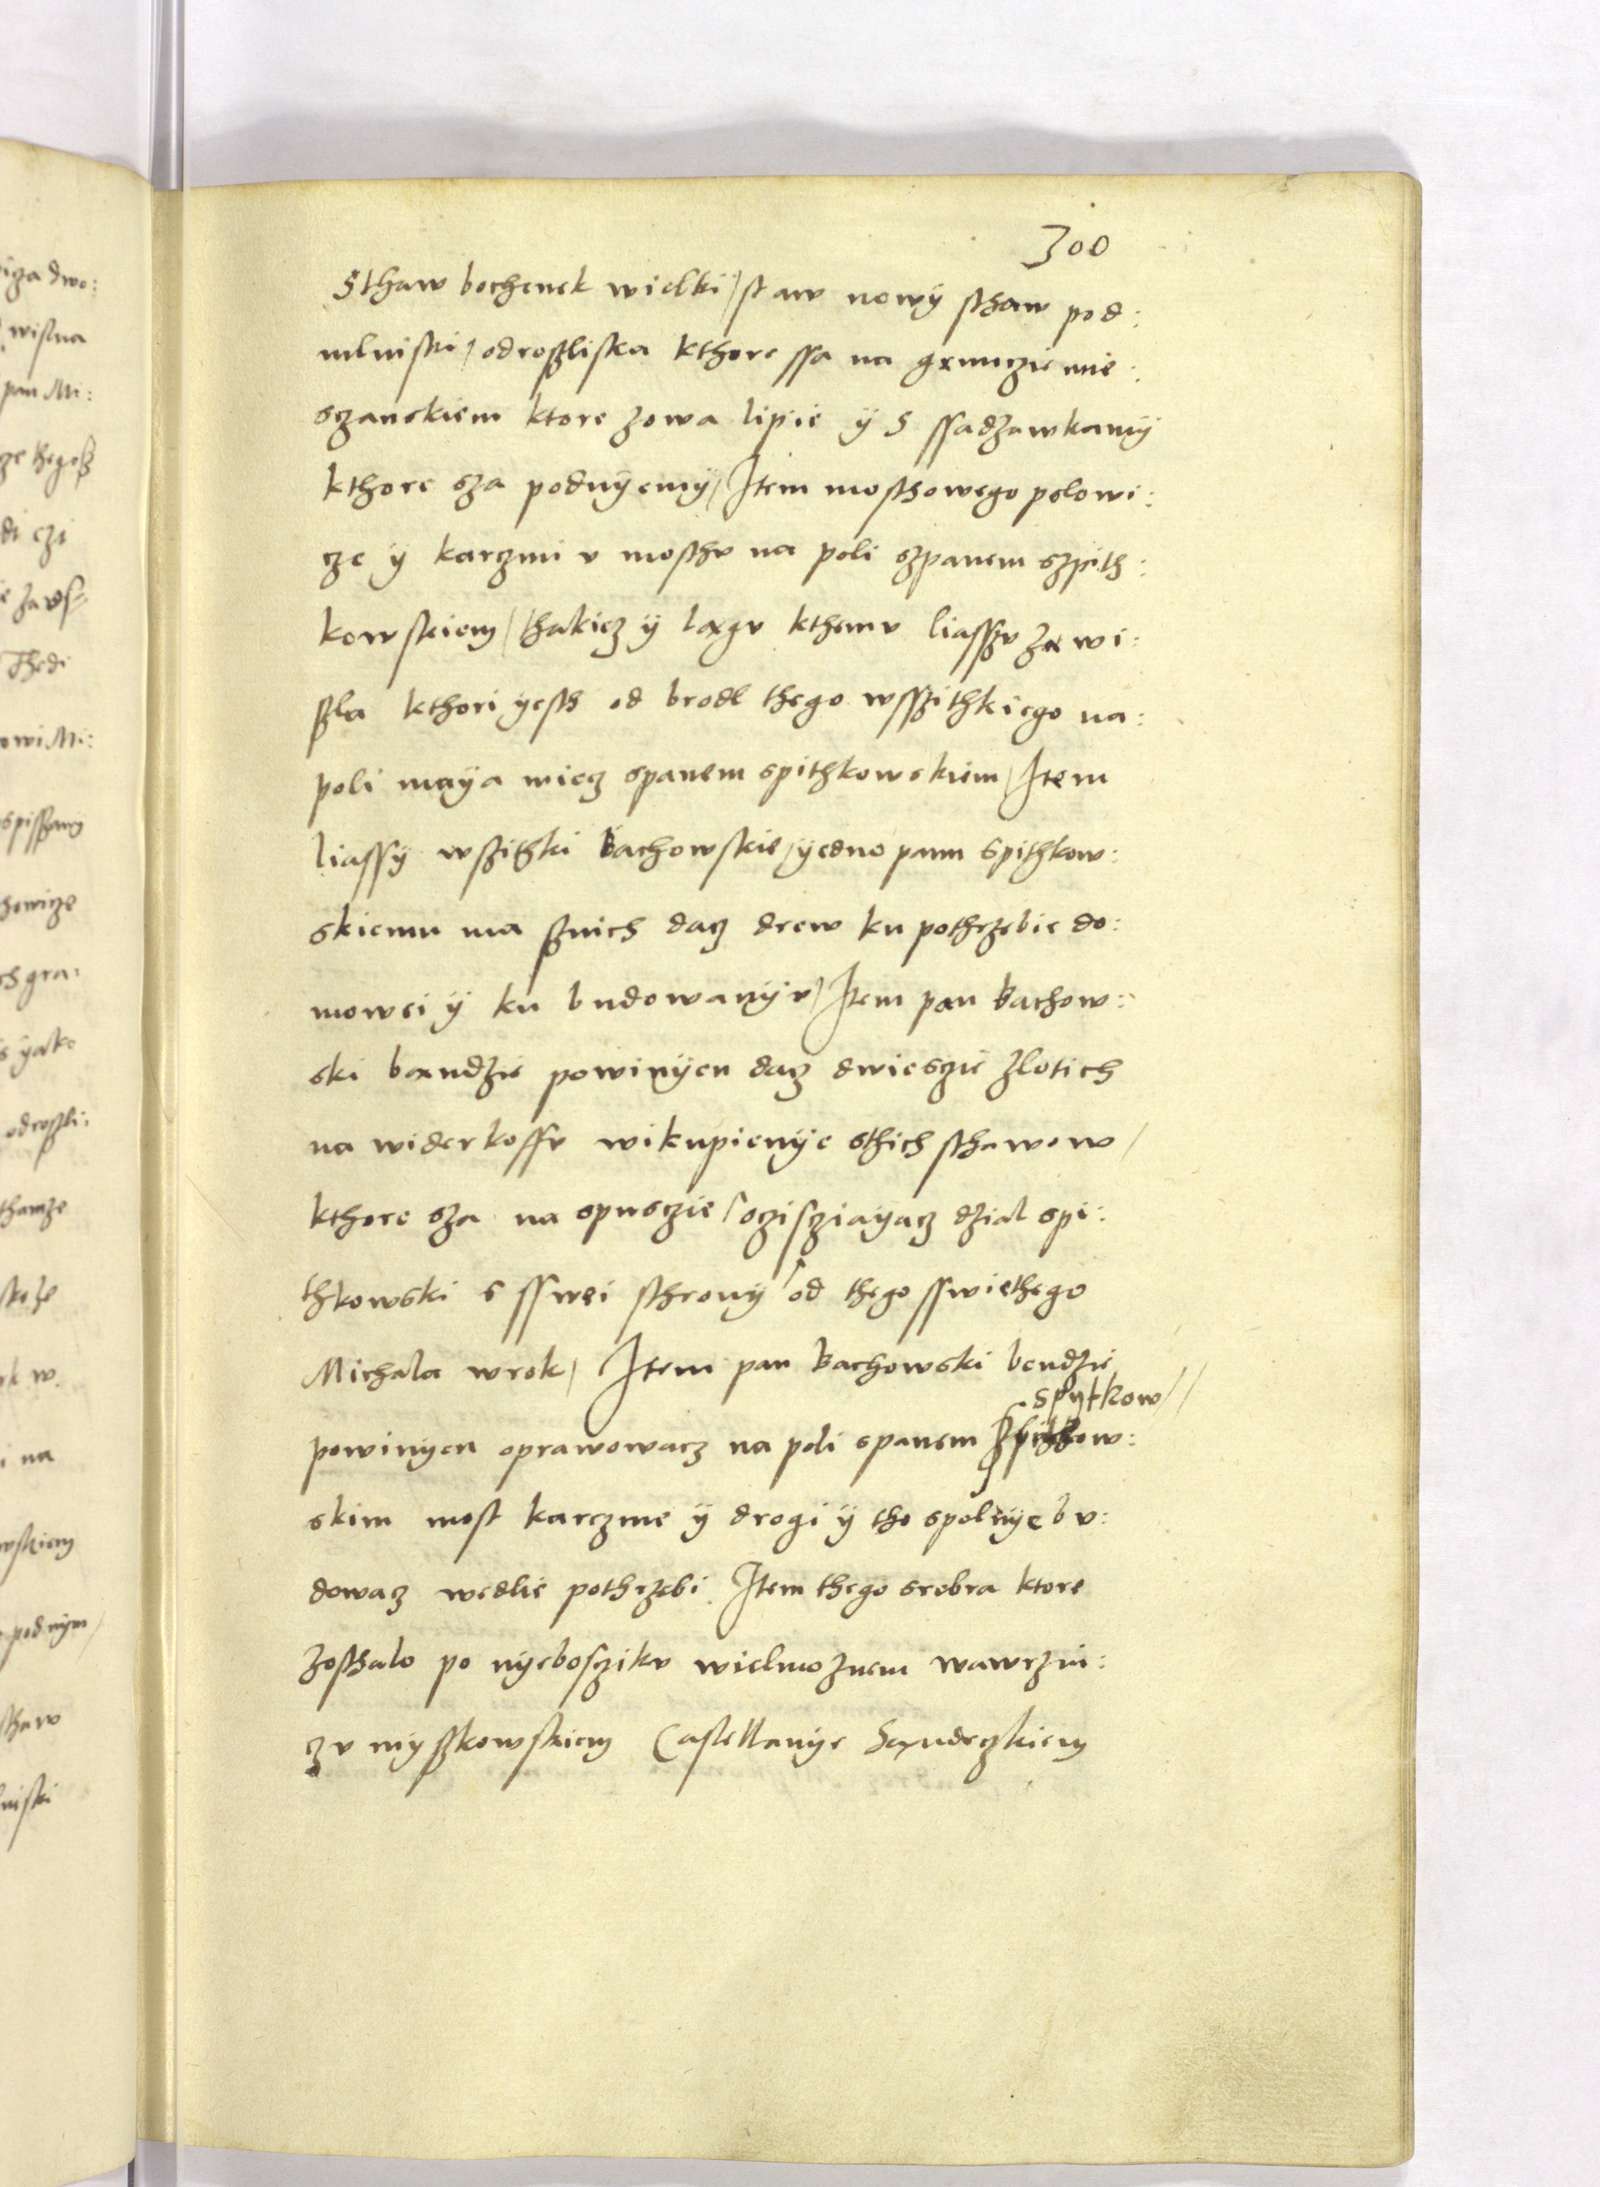 300
Sthaw bochenek wielki / staw nowÿ sthaw pod:
mlniski / odroszliska kthore ssa na grunczie mie:
sczanskiem ktore zowa lipie ÿ s ssadzawkamÿ
kthore sza podnÿemÿ / Item mosthowego polowi:
cze ÿ karczmi v mosthv na poli szpanem szpith:
kowskiem / thakiez ÿ laxgv kthemv liasszv za wi:
szla kthori ÿesth od brodl thego wsszithkiego na:
poli maÿa miecz spanem spithkowskiem / Item
liassÿ wszitzki Bachowskie / ÿedno panu spithkow:
skiemu ma sznich dacz drew ku pothrzebie do:
mowei ÿ ku budowanÿv / Item pan Bachow:
ski bandzie powinÿen dacz dwiesczie zlotich
na widerkoffv wikupienÿe sthich sthawow /
kthore sza na spusczie / oczisziaÿacz dzial spi:
thkowski s sswei sthronÿ / od thego sswiethego
Michala wrok / Item pan Bachowski bendzie
spytkow //
powinÿen oprawowacz na poli spanem
skim most karczme ÿ drogi ÿ tho spolnÿe bv:
dowacz wedlie pothrzebi. Item thego srebra ktore
zosthalo po nÿeboszikv wielmoznem wawrzni:
czv mÿszkowskiem Castellanÿe Sandeczkiem